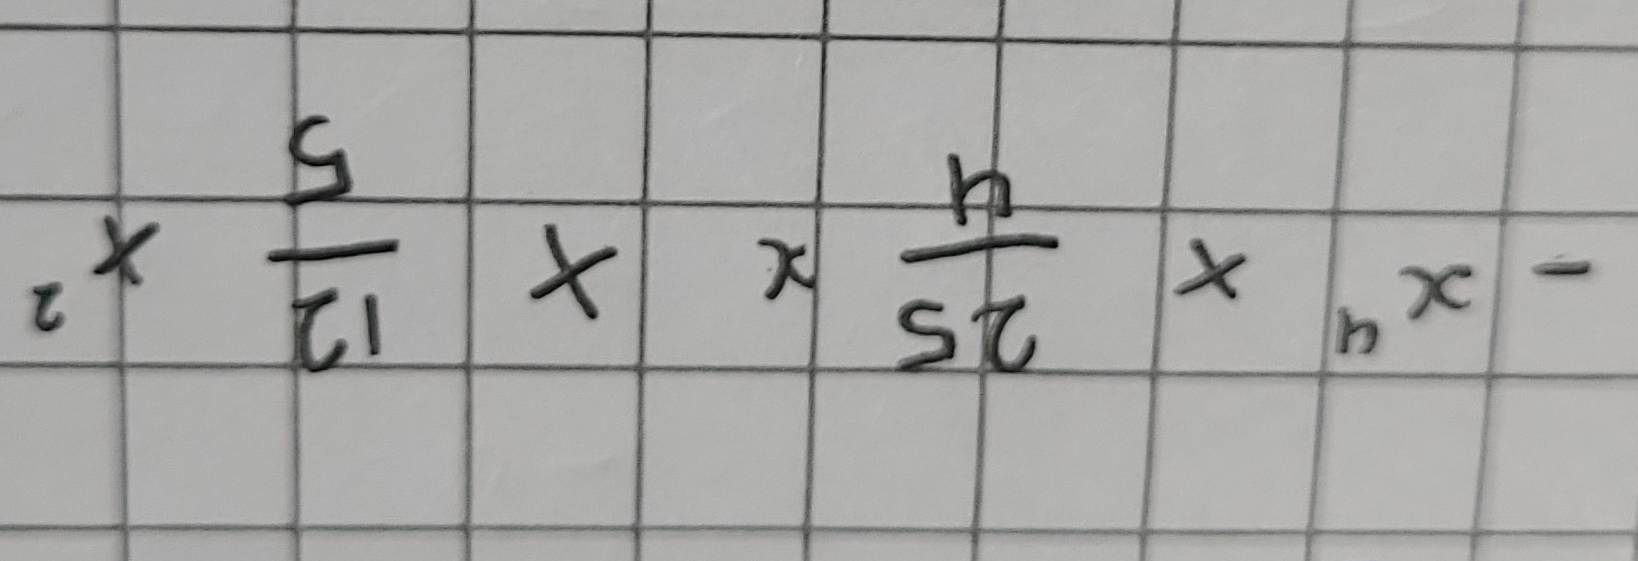 - x⁴ × 25/4 x × 12/5 x²